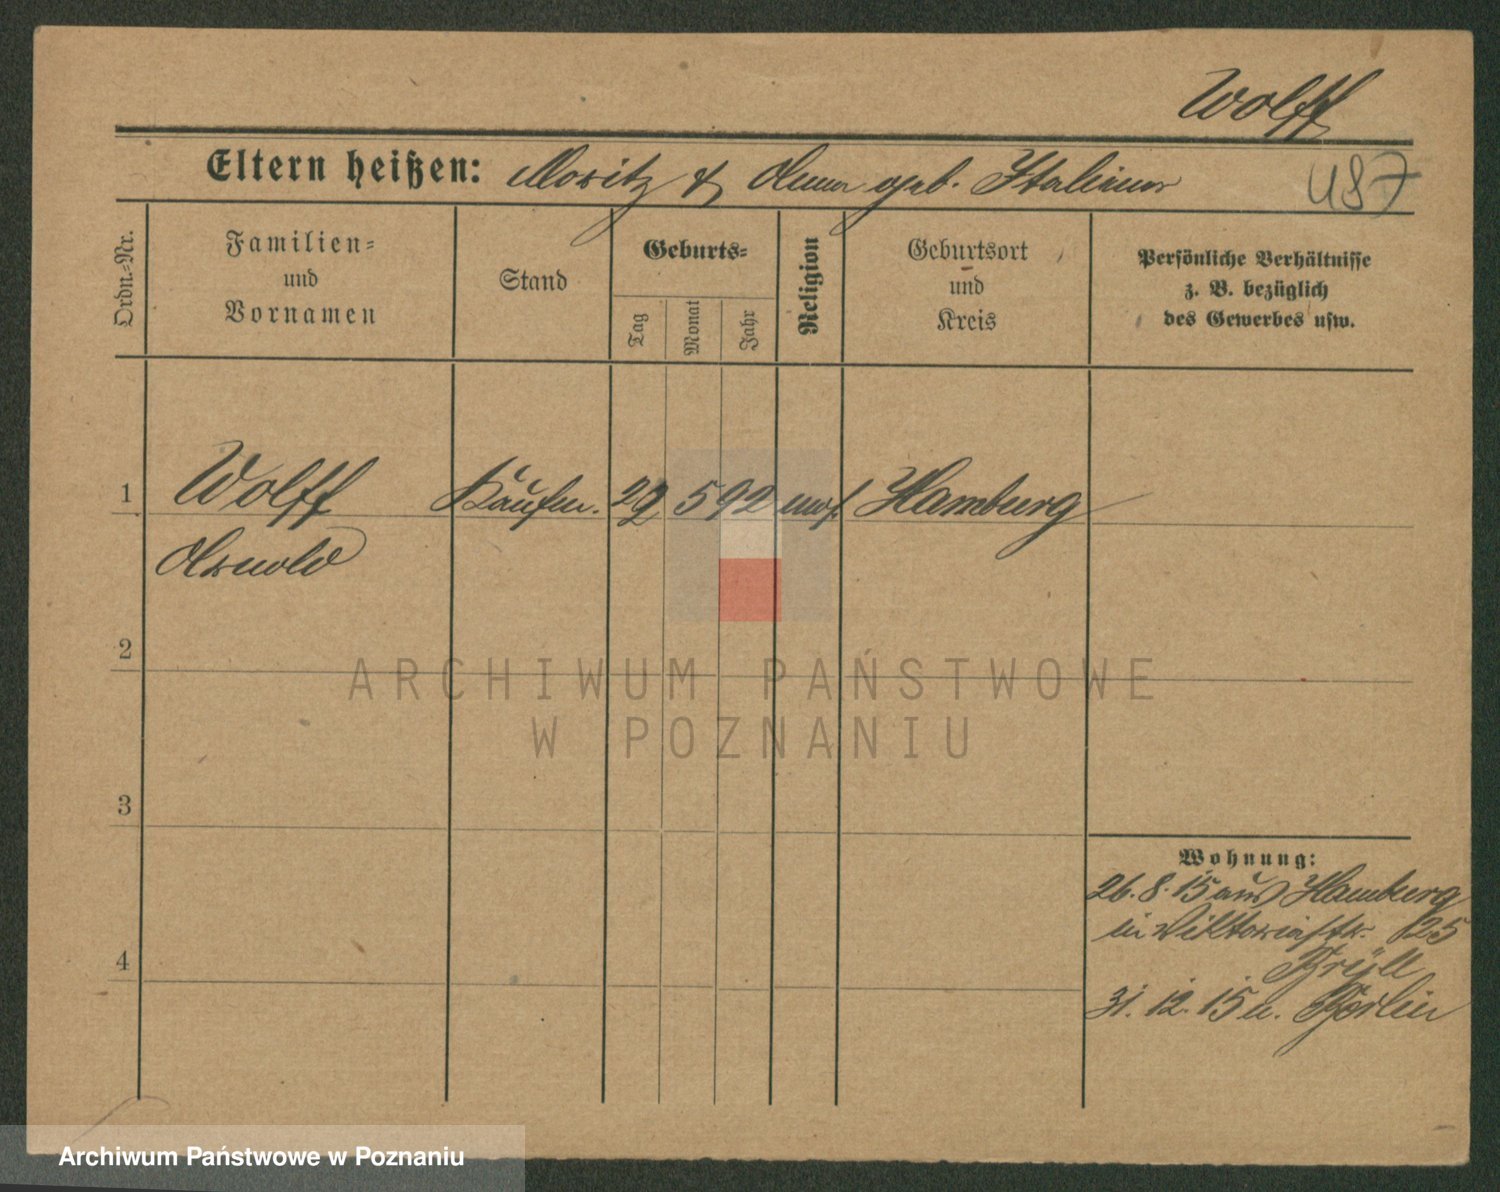 Wolff
Eltern heißen: Moritz & Anna geb. Italiener
487
Ordn.-Nr.
Familien-
und
Vornamen
Stand
Geburts-
Tag
Monat
Jahr
Religion
Geburtsort
und
Kreis
Persönliche Verhältnisse
z. B. bezüglich
des Gewerbes usw.
1
Wolff
Kaufm.
22
5
92
mos.
Hamburg
Arnold
2
ARCHIWUM PAŃSTWOWE
W POZNANIU
3
Wohnung:
26. 8. 15 aus Hamburg
in Viktoriastr. 25
4
31. 12. 15 n. Berlin
Archiwum Państwowe w Poznaniu